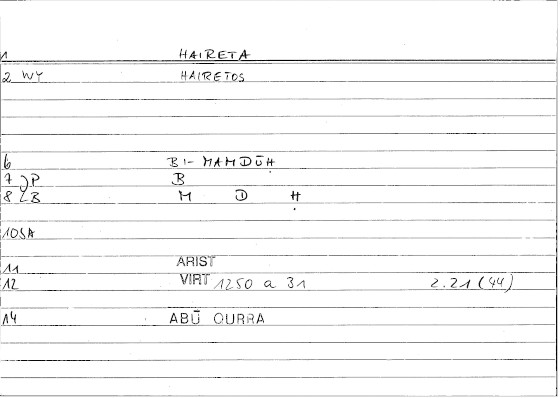 1 HAIRETA
2 WY HAIRETOS
6 B :- MAMDŪḤ
7 P B
8 B M D Ḥ
10SA
11 ARIST
12 VIRT 1250 a 31 2.21 (44)
14 ABŪ QURRA